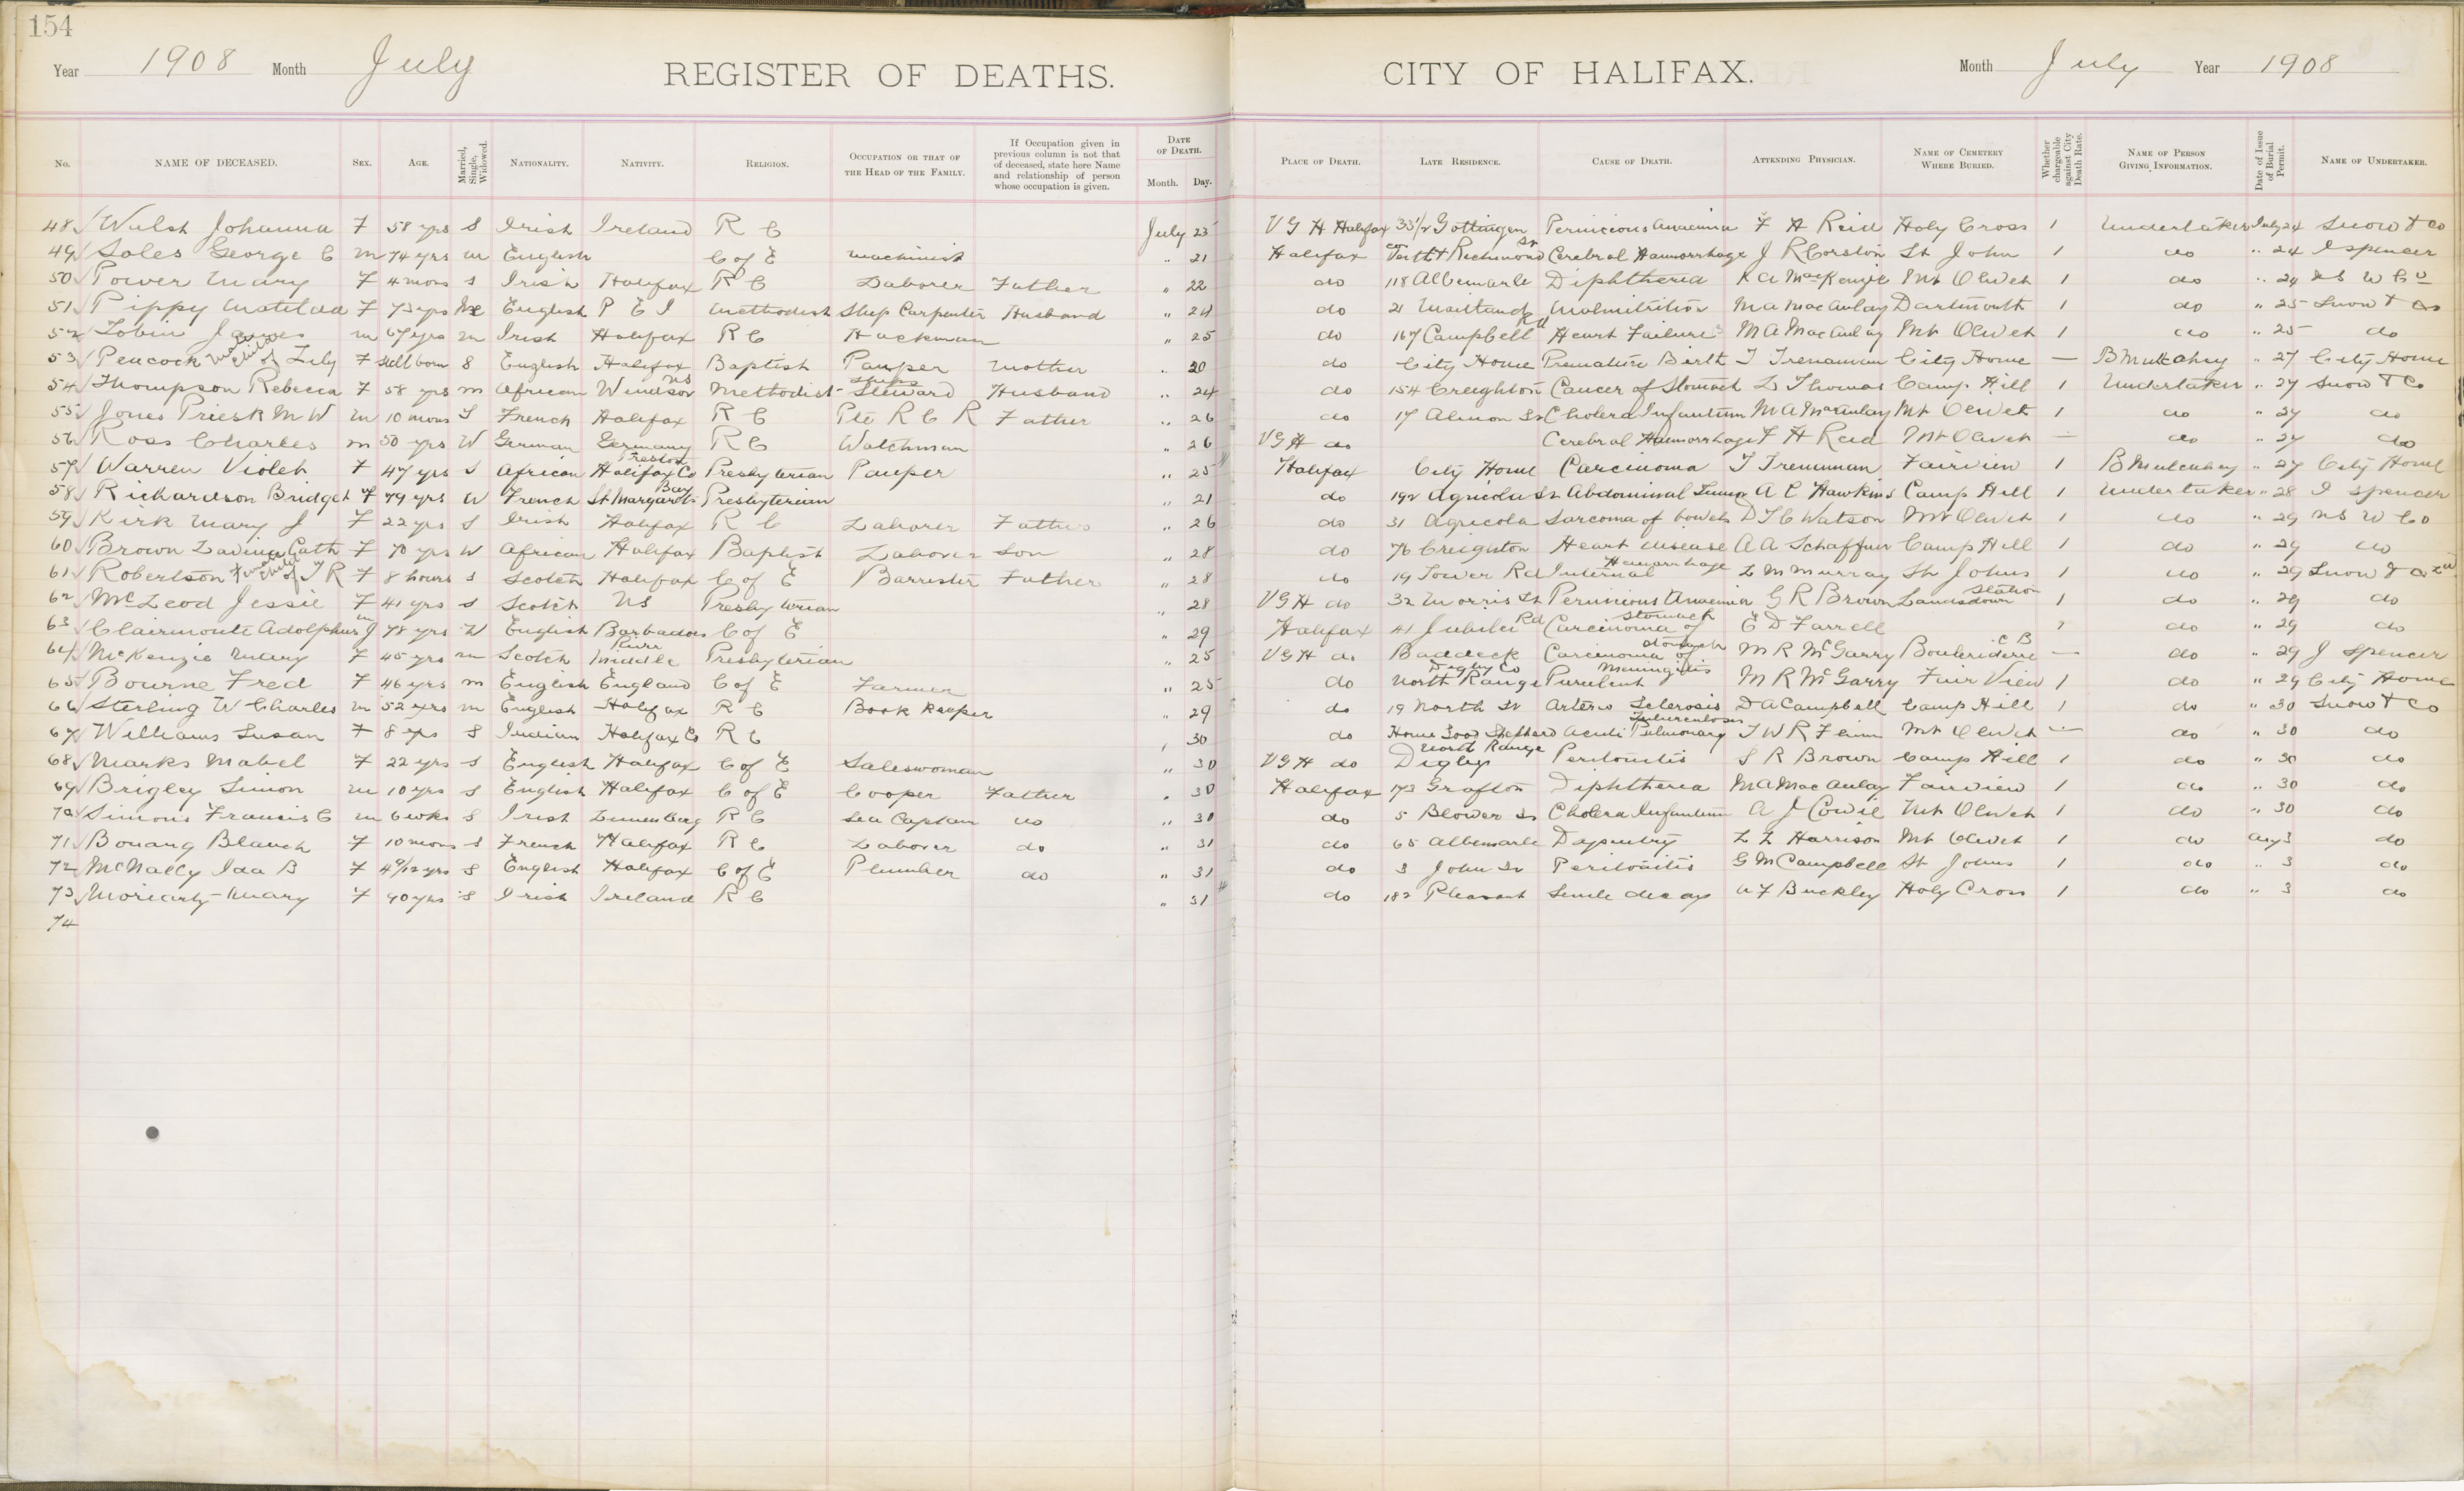 154
Year 1908 Month July REGISTER OF DEATHS. CITY OF HALIFAX. Month July Year 1908
No. NAME OF DECEASED. SEX. AGE. Married, Single, Widowed. NATIONALITY. NATIVITY. RELIGION. OCCUPATION OR THAT OF THE HEAD OF THE FAMILY. If Occupation given in previous column is not that of deceased, state here Name and relationship of person whose occupation is given. DATE OF DEATH. Month. Day. PLACE OF DEATH. LATE RESIDENCE. CAUSE OF DEATH. ATTENDING PHYSICIAN. NAME OF CEMETERY WHERE BURIED. Whether chargeable against City Death Rate. NAME OF PERSON GIVING INFORMATION. Date of Issue of Burial Permit. NAME OF UNDERTAKER.
48 Walsh Johanna F 58 yrs S Irish Ireland R C July 23 V G H Halifax 33½ Gottingen Pernicious Anaemia F H Reid Holy Cross 1 Undertaker July 24 Snow & Co
49 Soles George C m 74 yrs m English C of E machinist " 21 Halifax cor Veith & Richmond St Cerebral Haemorrhage J R Corston St John 1 do " 24 J Spencer
50 Power Mary F 4 mons s Irish Halifax R C Laborer Father " 22 do 118 Albemarle Diphtheria K A MacKenzie Mt Olivet 1 do " 24 N S W Co
51 Pippy Matilda F 73 yrs M English P E I Methodist Ship Carpenter Husband " 24 do 21 Maitland Malnutrition M A MacAulay Dartmouth 1 do " 25 Snow & Co
52 Tobin James m 67 yrs m Irish Halifax R C Hackman " 25 do 167 Campbell Rd Heart Failure M A MacAulay Mt Olivet 1 do " 25 do
53 Peacock child of Lily F Still born S English Halifax Baptist Pauper Mother " 20 do City Home Premature Birth T Trenaman City Home — B Mulcahey " 27 City Home
54 Thompson Rebecca F 58 yrs m African Windsor NS Methodist Ships Steward Husband " 24 do 154 Creighton Cancer of Stomach L Thomas Camp Hill 1 Undertaker " 27 Snow & Co
55 Jones Priesk M W m 10 mons S French Halifax R C Pte R C R Father " 26 do 17 Almon St Cholera Infantum M A MacAulay Mt Olivet 1 do " 27 do
56 Ross Charles m 50 yrs W German Germany R C Watchman " 26 V G H do Cerebral Haemorrhage F H Reid Mt Olivet — do " 27 do
57 Warren Violet F 47 yrs S African Preston Halifax Co Presbyterian Pauper " 25 Halifax City Home Carcinoma T Trenaman Fairview 1 B Mulcahey " 27 City Home
58 Richardson Bridget F 79 yrs W French St Margarets Bay Presbyterian " 21 do 192 Agricola St Abdominal Tumor A C Hawkins Camp Hill 1 Undertaker " 28 J Spencer
59 Kirk Mary J F 22 yrs S Irish Halifax R C Laborer Father " 26 do 31 Agricola Sarcoma of bowels D T C Watson Mt Olivet 1 do " 29 N S W Co
60 Brown Lavinia Cath F 70 yrs W African Halifax Baptist Laborer Son " 28 do 76 Creighton Heart disease A A Schaffner Camp Hill 1 do " 29 do
61 Robertson Female child of T R F 8 hours s Scotch Halifax C of E Barrister Father " 28 do 19 Tower Rd Internal Haemorrhage L M Murray St Johns 1 do " 29 Snow & Co
62 McLeod Jessie F 41 yrs s Scotch NS Presbyterian " 28 V G H do 32 Morris St Pernicious Anaemia G R Brown Lansdown Station 1 do " 29 do
63 Clairmonte Adolphus J m 78 yrs W English Barbados C of E " 29 Halifax 41 Jubilee Rd Carcinoma of Stomach E D Farrell 1 do " 29 do
64 McKenzie Mary F 45 yrs m Scotch Middle River Presbyterian " 25 V G H do Baddeck Carcinoma of stomach M R McGarry Boularderie C B — do " 29 J Spencer
65 Bourne Fred F 46 yrs m English England C of E Farmer " 25 do North Range Digby Co Purulent Meningitis M R McGarry Fair View 1 do " 29 City Home
66 Sterling W Charles m 52 yrs m English Halifax R C Book Keeper " 29 do 19 North St Arterio Sclerosis D A Campbell Camp Hill 1 do " 30 Snow & Co
67 Williams Susan F 8 yrs S Indian Halifax Co R C " 30 do Home Good Shepherd Acute Pulmonary Tuberculosis T W R Flinn Mt Olivet — do " 30 do
68 Marks Mabel F 22 yrs s English Halifax C of E Saleswoman " 30 V G H do Digby North Range Peritonitis S R Brown Camp Hill 1 do " 30 do
69 Brigley Simon m 10 yrs s English Halifax C of E Cooper Father " 30 Halifax 173 Grafton Diphtheria M A MacAulay Fairview 1 do " 30 do
70 Simons Francis C m 6 wks S Irish Lunenburg R C Sea Captain do " 30 do 5 Blower St Cholera Infantum A J Cowie Mt Olivet 1 do " 30 do
71 Bouang Blanch F 10 mons s French Halifax R C Laborer do " 31 do 65 Albemarle Dysentry L L Harrison Mt Olivet 1 do Aug 3 do
72 McNally Ida B F 4 9/12 yrs S English Halifax C of E Plumber do " 31 do 3 John St Peritonitis G M Campbell St Johns 1 do " 3 do
73 Moriarty Mary F 90 yrs S Irish Ireland R C " 31 do 182 Pleasant Senile decay A F Buckley Holy Cross 1 do " 3 do
74